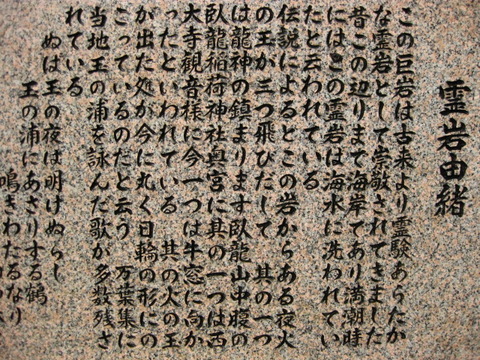 霊岩由緒
この巨岩は古来より霊験あらたか
な霊岩として崇敬されてきました
昔この辺りまで海岸であり満潮時
にはこの霊岩は海水に洗われてい
たと云われている
伝説によるとこの岩からある夜火
の王が三つ飛びだして 其の一つ
は龍神の鎮まります臥龍山中腹の
臥龍稲荷神社奥宮に其の一つは西
大寺観音様に今一つは牛窓に向か
ったといわれている 其の火の王
が出た処が今に丸く日輪の形にの
こっているのだと云う 万葉集に
当地王の浦を詠んだ歌が多数残さ
れている
ぬは王の夜は明けぬらし
王の浦にあさりする鶴
鳴きわたるなり